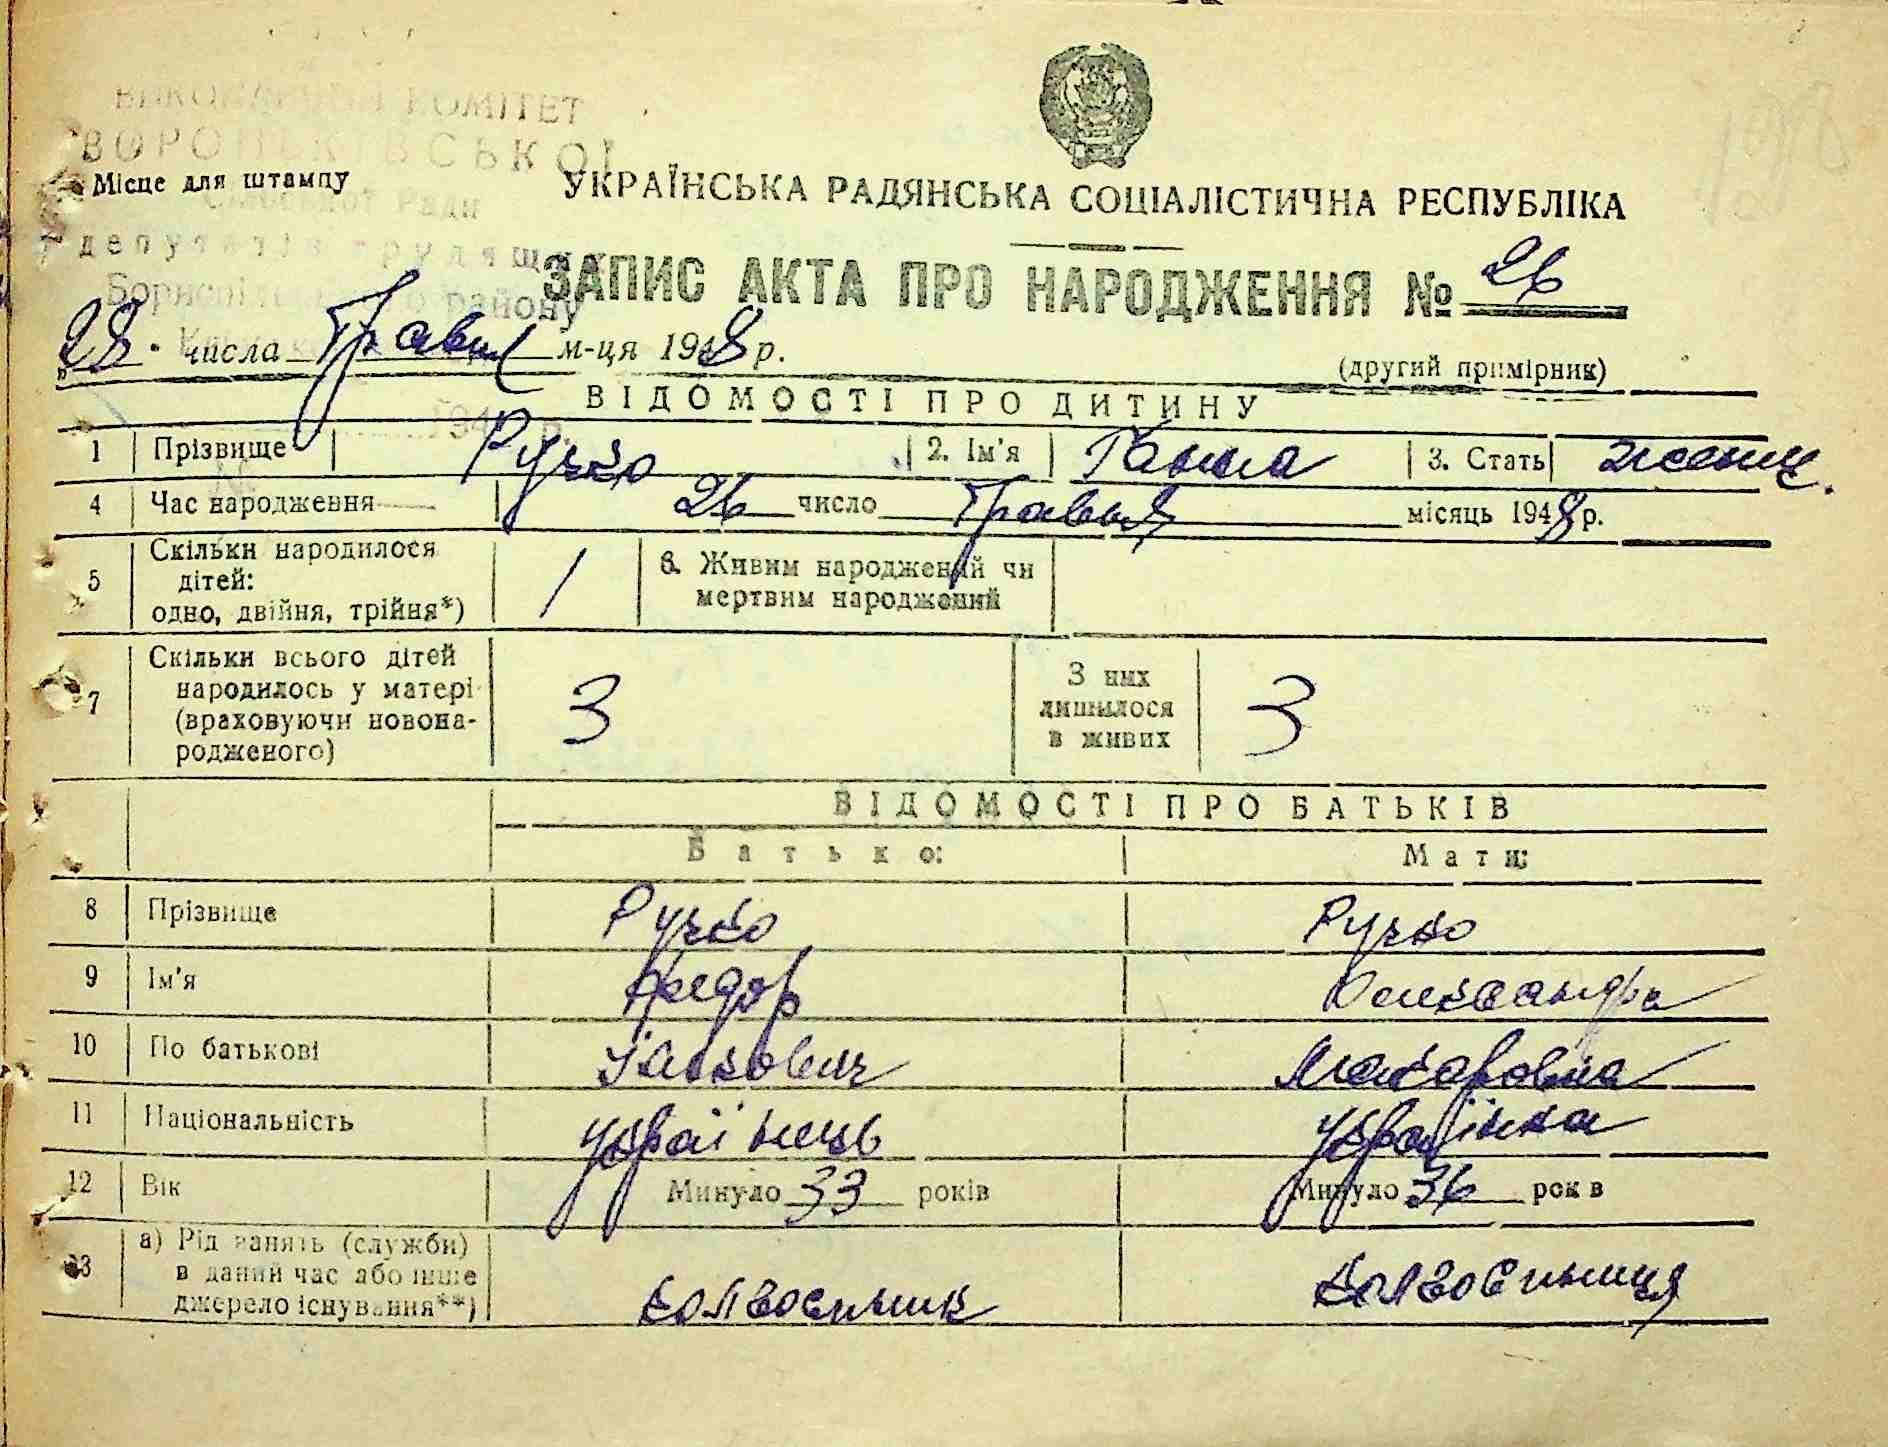 ВИКОНАВЧИЙ КОМІТЕТ
ВОРОНЬКІВСЬКОЇ
Місце для штампу
Сільської Ради
депутатів трудящ
Бориспільського району
УКРАЇНСЬКА РАДЯНСЬКА СОЦІАЛІСТИЧНА РЕСПУБЛІКА
ЗАПИС АКТА ПРО НАРОДЖЕННЯ № 26
28 числа Травня м-ця 1948 р.
(другий примірник)
ВІДОМОСТІ ПРО ДИТИНУ
1 Прізвище Ручко 2. Ім'я Ганна 3. Стать женщ.
4 Час народження 26 число Травня місяць 1948 р.
5 Скільки народилося дітей: одно, двійня, трійня*) 1 6. Живим народжений чи мертвим народжений
7 Скільки всього дітей народилось у матері (враховуючи новонародженого) 3 З них лишилося в живих 3
ВІДОМОСТІ ПРО БАТЬКІВ
Батько: Мати:
8 Прізвище Ручко Ручко
9 Ім'я Федор Олександра
10 По батькові Макаровна
11 Національність українець українка
12 Вік Минуло 33 років Минуло 36 рок в
13 а) Рід занять (служби) в даний час або інше джерело існування**) колгоспник колгоспниця